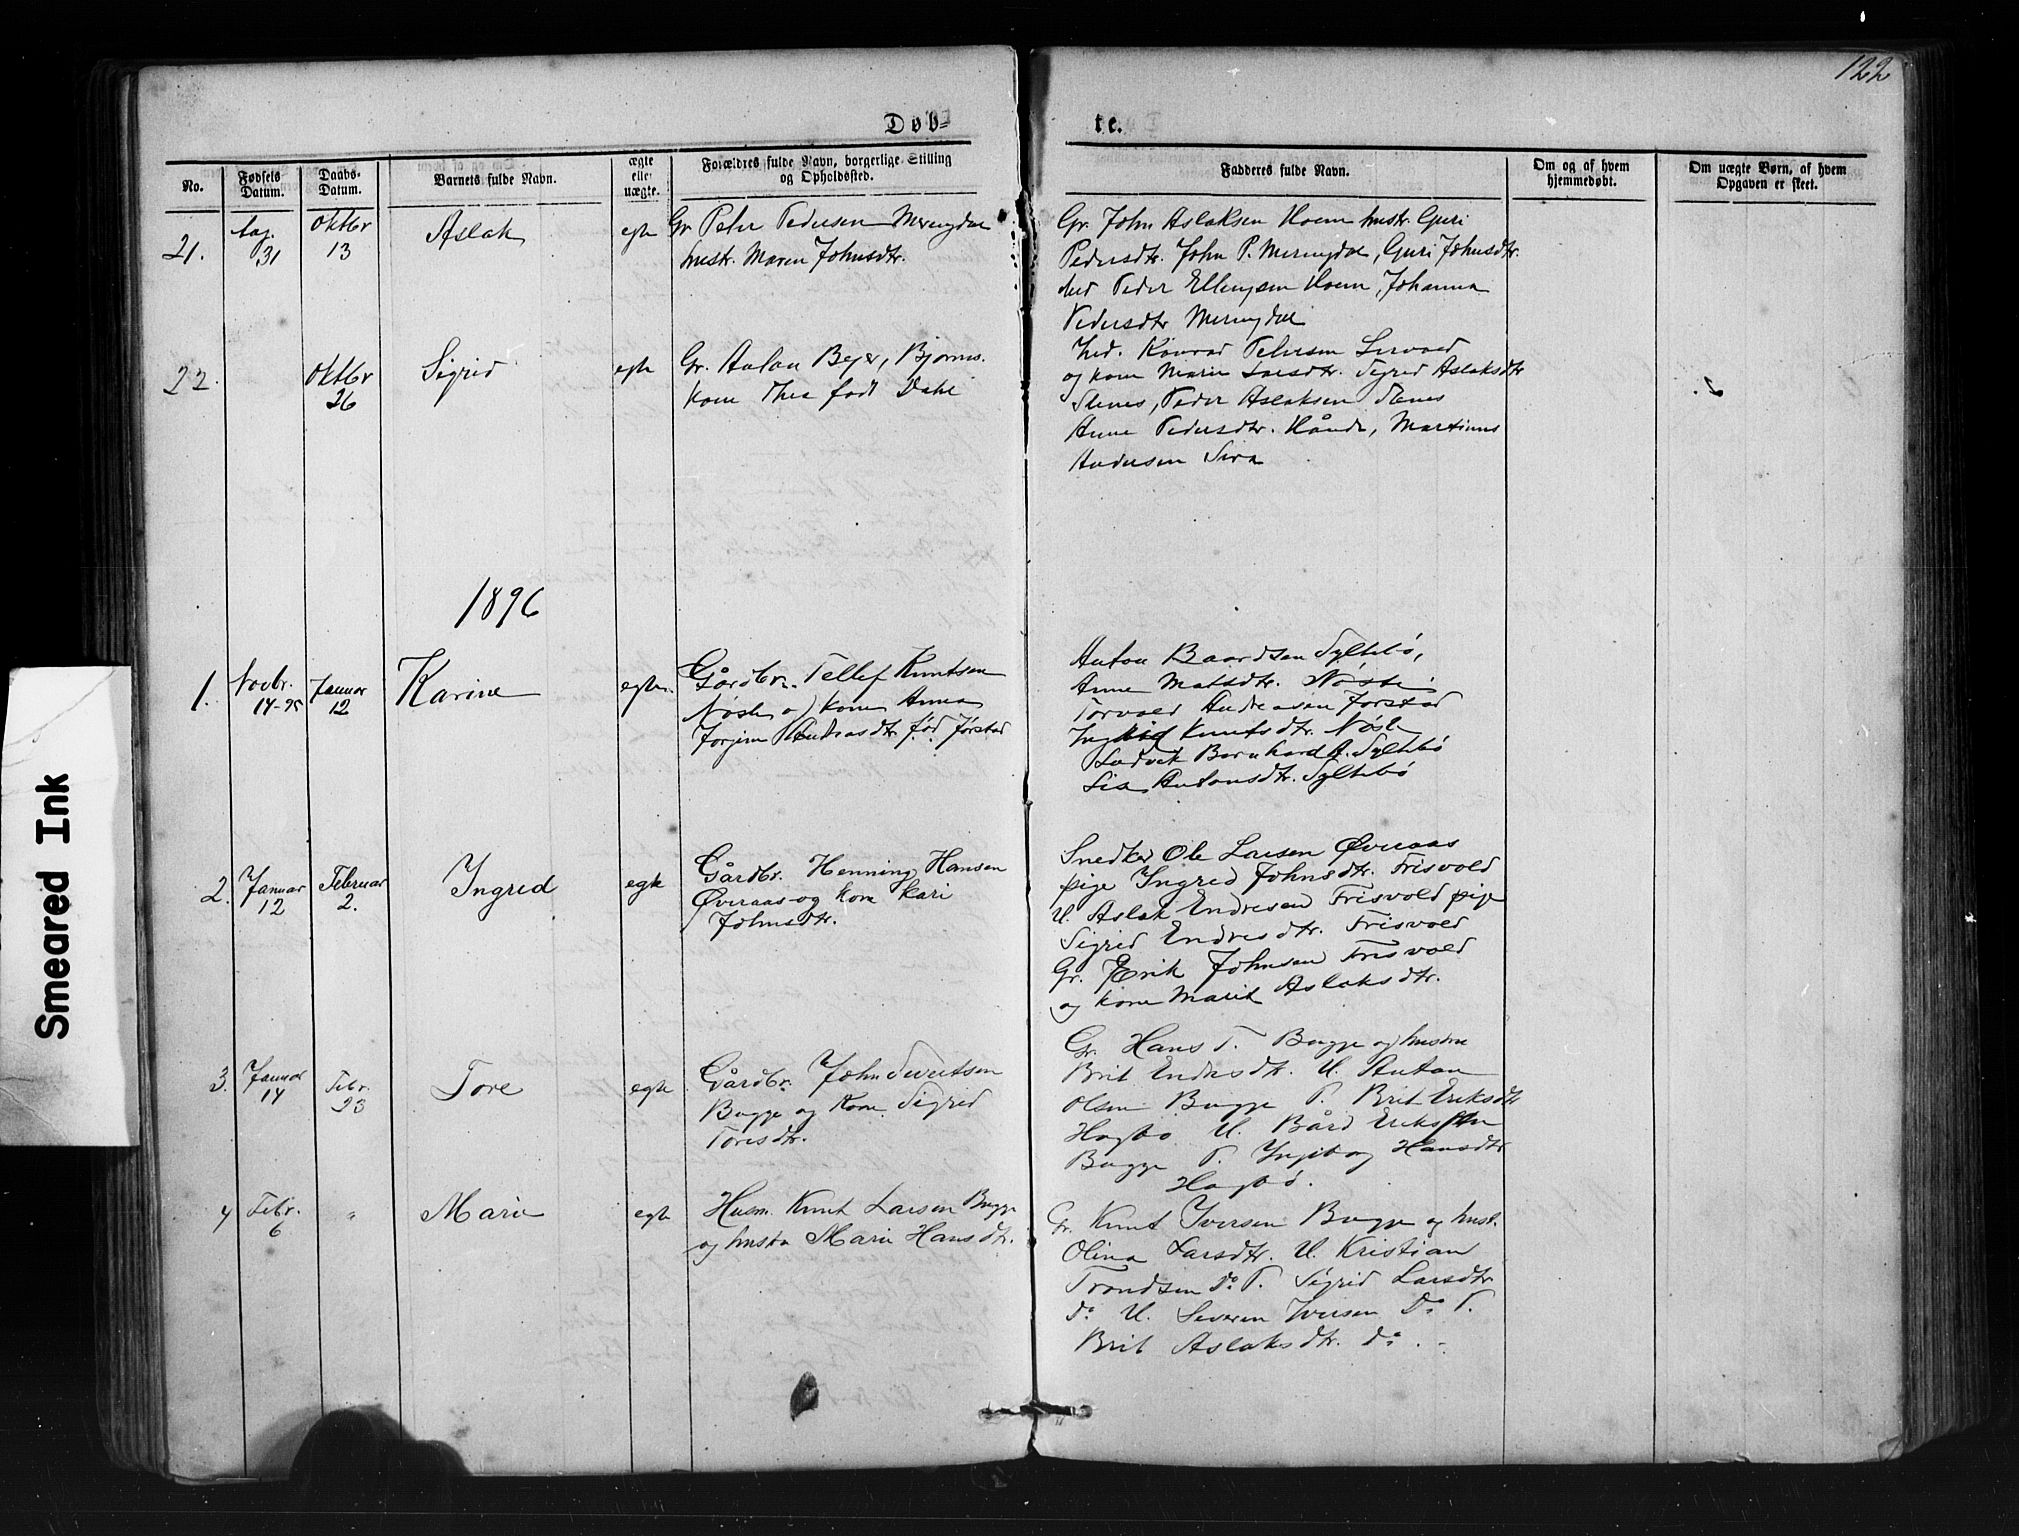 122
Døb-
te.
No.
Fødsels Datum.
Daabs-Datum.
Barnets fulde Navn.
ægte eller uægte.
Forældres fulde Navn, borgerlige Stilling og Opholdssted.
Fadderes fulde Navn.
Om og af hvem hjemmedøbt.
Om uægte Børn, af hvem Opgaven er skeet.
21.
Aug. 31
Oktbr 13
Aslak
egte
Gr. Peter Pedersen Meringdal
hustr. Maren Johnsdtr.
Gr. John Aslaksen Hoem hustr. Guri
Pedersdtr. John P. Meringdal, Guri Johnsdtr.
Peder Ellingsen Hoem, Johanna
Pedersdtr Meringdal
22.
Oktbr 26
Sigrid
egte
Gr. Anton Beyer, Bjorns.
kone Thea født Dahl
Konrad Petersen
og kone Marie Larsdtr. Sigrid Aslaksdtr
Stenes, Peder Aslaksen Stenes
Anne Pedersdtr. Hånde, Martinus
Andersen Sira
1896
1.
Novbr. 14-95
Januar 12
Karine
egte
Gårdbr. Tellef Knutsen
Nøste og kone Anna
Andreasdtr. fød Jørstad
Anton Baardsen Syltebø,
Anne Matsdtr. Nøste
Torvald Andreasen Jørstad
Ingrid Knutsdtr. Nøste
Ludvik Bernhard A. Syltebø
Lisa Antonsdtr. Syltebø
2.
Januar 12
Februar 2.
Ingrid
egte
Gårdbr. Henning Hansen
Øveraas og kone Kari
Johnsdtr.
Snedker Ole Larsen Øveraas
pige Ingrid Johnsdtr. Frisvold
U. Aslak Endresen Frisvold pige
Sigrid Endresdtr. Frisvold
Gr. Erik Johnsen Frisvold
og kone Marit Aslaksdtr.
3.
Januar 14
Febr. 23
Tore
egte
Gårdbr. John Sivertsen
Bugge og kone Sigrid
Toresdtr.
Gr. Hans T. Bugge og hustru
Brit Endresdtr. U. Anton
Olsen Bugge P. Brit Eriksdtr
Hagbø U. Bård Eriksen
Bugge P. Ingeborg Hansdtr
Hagbø.
4
Febr. 6
"
Marie
egte
Husm. Knut Larsen Bugge
og hustru Marie Hansdtr.
Gr. Knut Iversen Bugge og hust.
Olina Larsdtr. U. Kristian
Trondsen Do P. Sigrid Larsdtr
do U. Severin Iversen Do P.
Brit Aslaksdtr. do.
Smeared Ink